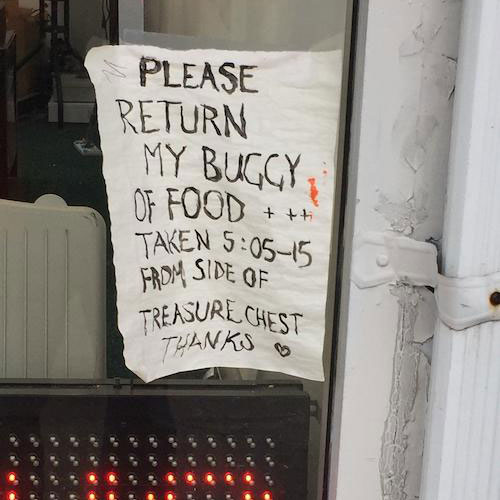 PLEASE
RETURN
MY BUGGY
OF FOOD + ++
TAKEN 5:05-15
FROM SIDE OF
TREASURE CHEST
THANKS ♡